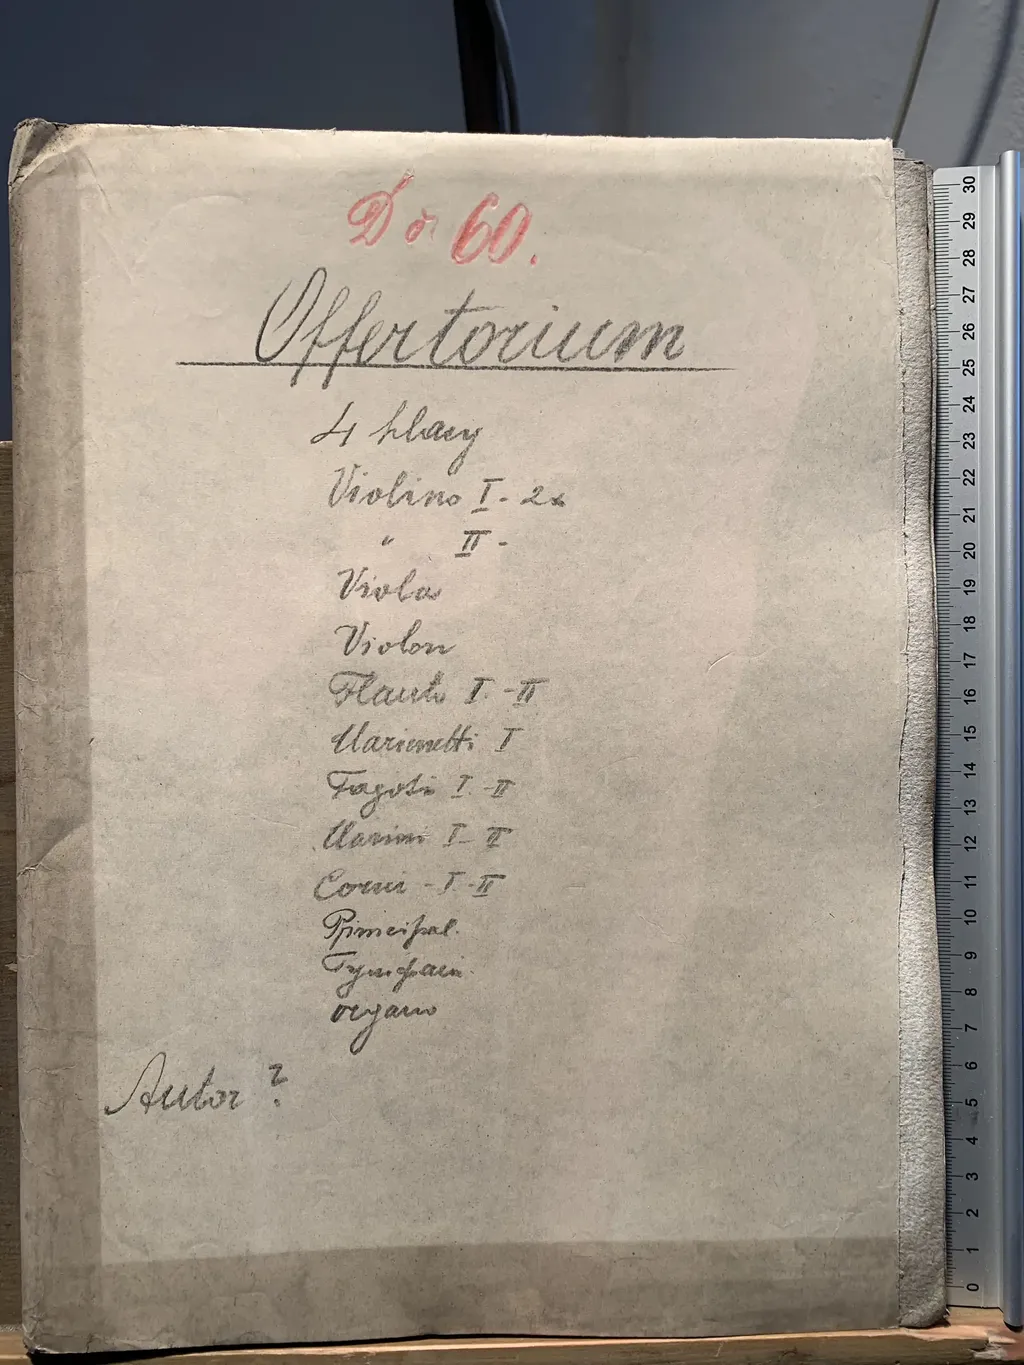 Dô 60.
Offertorium
4 hlasy
Violino I - 2x
" II -
Viola
Violon
Flauto I. - II
Clarinetti I
Fagoti I. - II
Clarini I - II
Corni - I. - II
Principal.
Tympani.
organo
Autor ?
30
29
28
27
26
25
24
23
22
21
20
19
18
17
16
15
14
13
12
11
10
9
8
7
6
5
4
3
2
1
0